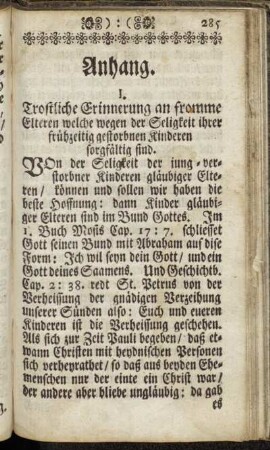 ( ) : ( ) 285
Anhang.
I.
Trostliche Erinnerung an fromme
Elteren welche wegen der Seligkeit ihrer
frühzeitig gestorbnen Kinderen
sorgfältig sind.
VOn der Seligkeit der jung-ver-
storbner Kinderen gläubiger Elte-
ren / können und sollen wir haben die
beste Hoffnung: dann Kinder gläubi-
ger Elteren sind im Bund Gottes. Im
1. Buch Mosis Cap. 17: 7. schliesset
Gott seinen Bund mit Abraham auf dise
Form: Ich wil seyn dein Gott / und ein
Gott deines Saamens. Und Geschichtb.
Cap. 2: 38. redt St. Petrus von der
Verheissung der gnädigen Verzeihung
unserer Sünden also: Euch und eueren
Kinderen ist die Verheissung geschehen.
Als sich zur Zeit Pauli begeben / daß et-
wann Christen mit heydnischen Personen
sich verheyrathet / so daß aus beyden Ehe-
menschen nur der einte ein Christ war /
der andere aber bliebe ungläubig: da gab
es